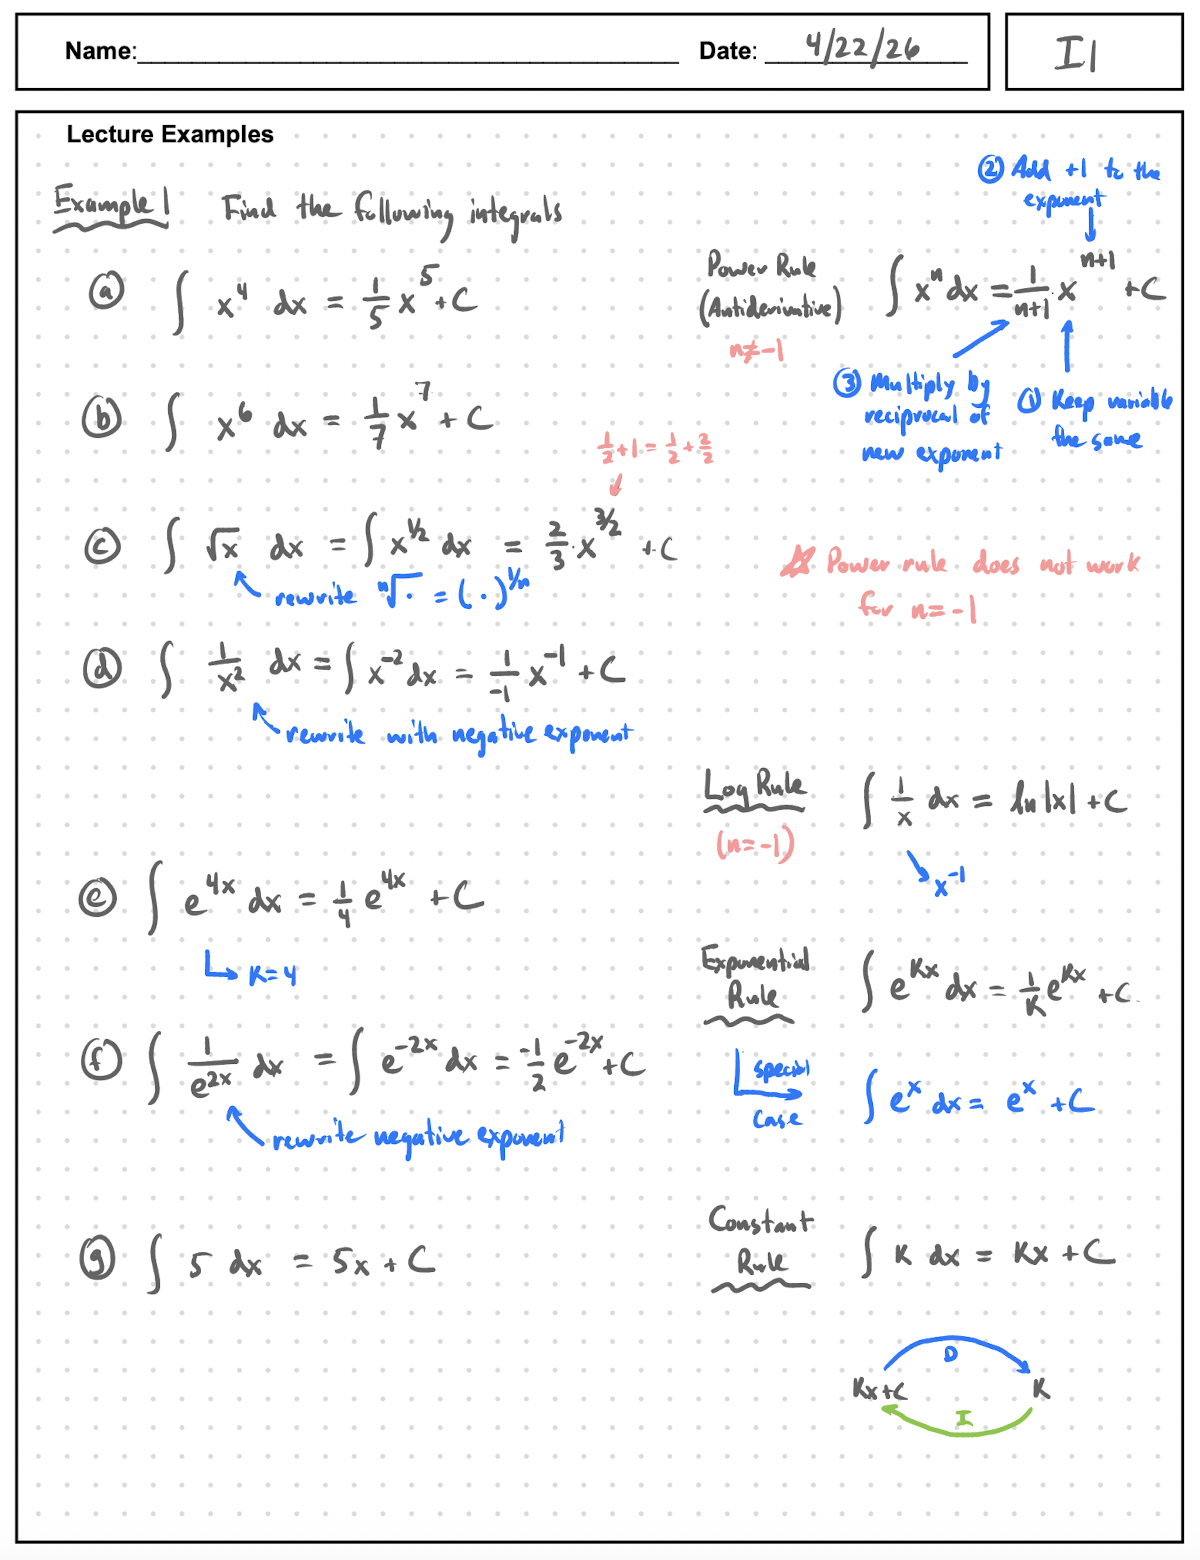 Name: Date: 4/22/26 I1
Lecture Examples
Example 1 Find the following integrals
ⓐ ∫ x⁴ dx = 1/5 x⁵ + C
ⓑ ∫ x⁶ dx = 1/7 x⁷ + C
1/2 + 1 = 1/2 + 2/2
ⓒ ∫ √x dx = ∫ x^(1/2) dx = 2/3 · x^(3/2) + C
rewrite ⁿ√· = (·)^(1/n)
ⓓ ∫ 1/x² dx = ∫ x⁻² dx = 1/-1 x⁻¹ + C
rewrite with negative exponent
ⓔ ∫ e^(4x) dx = 1/4 e^(4x) + C
K=4
ⓕ ∫ 1/e^(2x) dx = ∫ e^(-2x) dx = -1/2 e^(-2x) + C
rewrite negative exponent
ⓖ ∫ 5 dx = 5x + C
② Add +1 to the
exponent
Power Rule
(Antiderivative)
n≠-1
∫ xⁿ dx = 1/(n+1) · x^(n+1) + C
③ Multiply by
reciprocal of
new exponent
① Keep variable
the same
☆ Power rule does not work
for n=-1
Log Rule
(n=-1)
∫ 1/x dx = ln|x| + C
x⁻¹
Exponential
Rule
∫ e^(Kx) dx = 1/K e^(Kx) + C
special
case
∫ eˣ dx = eˣ + C
Constant
Rule
∫ K dx = Kx + C
D
Kx+C K
I